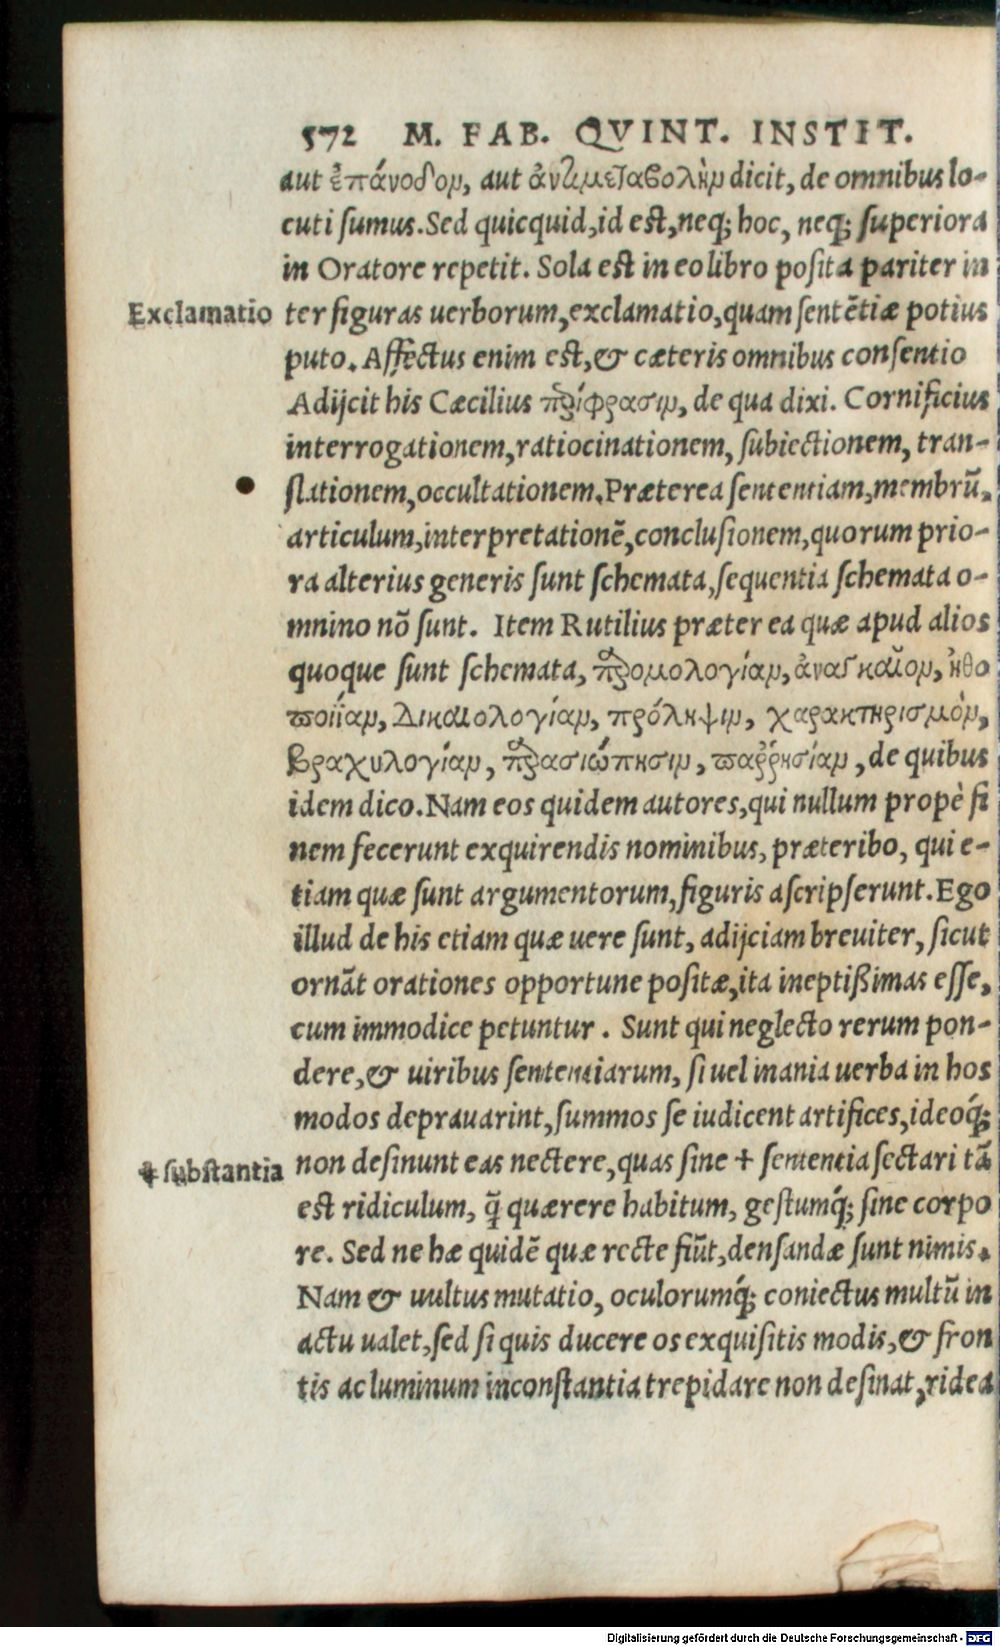 572 M. FAB. QVINT. INSTIT.
aut ἐπάνοδον, aut ἀντιμεταβολὴν dicit, de omnibus lo-
cuti ſumus. Sed quicquid, id est, neq; hoc, neq; ſuperiora
in Oratore repetit. Sola est in eo libro poſita pariter in
Exclamatio
ter figuras uerborum, exclamatio, quam ſentẽtiæ potius
puto. Affectus enim est, & cæteris omnibus conſentio
Adijcit his Cæcilius περίφρασιν, de qua dixi. Cornificius
interrogationem, ratiocinationem, ſubiectionem, tran-
ſlationem, occultationem. Præterea ſententiam, membrũ,
articulum, interpretationẽ, concluſionem, quorum prio-
ra alterius generis ſunt ſchemata, ſequentia ſchemata o-
mnino nõ ſunt. Item Rutilius præter ea quæ apud alios
quoque ſunt ſchemata, παρομολογίαν, ἀναγκαῖον, ἠθο
ποιΐαν, Δικαιολογίαν, πρόληψιν, χαρακτηρισμὸν,
βραχυλογίαν, παρασιώπησιν, παῤῥησίαν, de quibus
idem dico. Nam eos quidem autores, qui nullum propè fi
nem fecerunt exquirendis nominibus, præteribo, qui e-
tiam quæ ſunt argumentorum, figuris aſcripſerunt. Ego
illud de his etiam quæ uere ſunt, adijciam breuiter, ſicut
ornãt orationes opportune poſitæ, ita ineptißimas eſſe,
cum immodice petuntur. Sunt qui neglecto rerum pon-
dere, & uiribus ſententiarum, ſi uel inania uerba in hos
modos deprauarint, ſummos ſe iudicent artifices, ideoq́;
‡ ſubſtantia
non deſinunt eas nectere, quas ſine + ſententia ſectari tã
est ridiculum, q̃ quærere habitum, geſtumq́; ſine corpo
re. Sed ne hæ quidẽ quæ recte fiũt, denſandæ ſunt nimis.
Nam & uultus mutatio, oculorumq́; coniectus multũ in
actu ualet, ſed ſi quis ducere os exquiſitis modis, & fron
tis ac luminum inconſtantia trepidare non deſinat, ridea
Digitalisierung gefördert durch die Deutsche Forschungsgemeinschaft - DFG